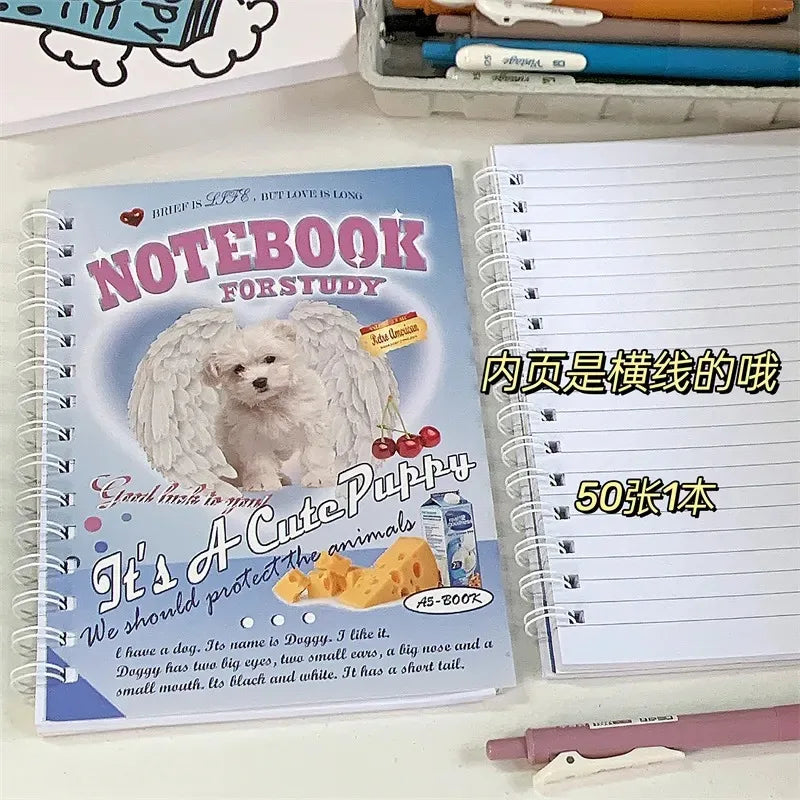 BRIEF IS LIFE, BUT LOVE IS LONG
NOTEBOOK
FOR STUDY
Retro American
Good luck to you!
It's A Cute Puppy
We should protect the animals
A5-BOOK
I have a dog. Its name is Doggy. I like it.
Doggy has two big eyes, two small ears, a big nose and a
small mouth. Its black and white. It has a short tail.
内页是横线的哦
50张1本
Vintage